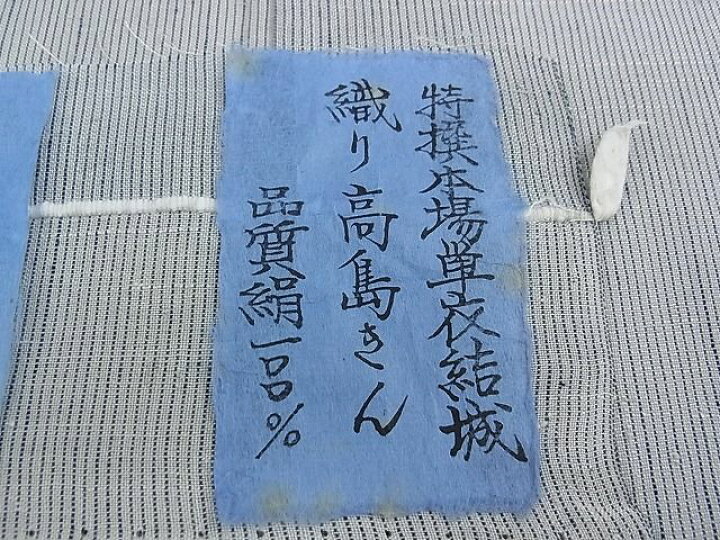 特撰本場単衣結城
織り高島きん
品質絹一〇〇%